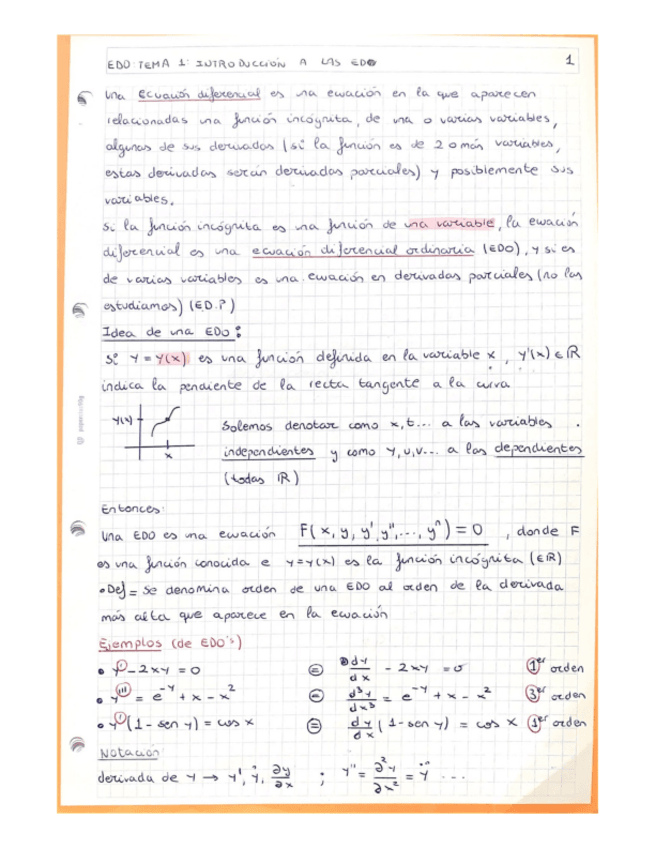 EDO: TEMA 1: INTRODUCCIÓN A LAS EDO 1
Una ecuación diferencial es una ecuación en la que aparecen
relacionadas una función incógnita, de una o varias variables,
algunas de sus derivadas (si la función es de 2 o más variables,
estas derivadas serán derivadas parciales) y posiblemente sus
variables.
Si la función incógnita es una función de una variable, la ecuación
diferencial es una ecuación diferencial ordinaria (EDO), y si es
de varias variables es una ecuación en derivadas parciales (no las
estudiamos) (ED.P)
Idea de una EDO:
Si Y = Y(x) es una función definida en la variable x, Y'(x) ∈ ℝ
indica la pendiente de la recta tangente a la curva
Y(x)
x
Solemos denotar como x, t... a las variables
independientes y como Y, u, v... a las dependientes
(todas ℝ)
Entonces:
Una EDO es una ecuación F(x, y, y', y'', ..., yⁿ) = 0, donde F
es una función conocida e Y=Y(x) es la función incógnita (∈ℝ)
• Def = Se denomina orden de una EDO al orden de la derivada
más alta que aparece en la ecuación
Ejemplos (de EDO's)
• Y' - 2xY = 0 ≡ dY/dx - 2xY = 0 1er orden
• Y''' = e^-Y + x - x² ≡ d³Y/dx³ = e^-Y + x - x² 3er orden
• Y'(1 - sen Y) = cos x ≡ dY/dx (1 - sen Y) = cos x 1er orden
Notación
derivada de Y → Y', Ẏ, ∂y/∂x ; Y'' = ∂²Y/∂x² = Ÿ ...